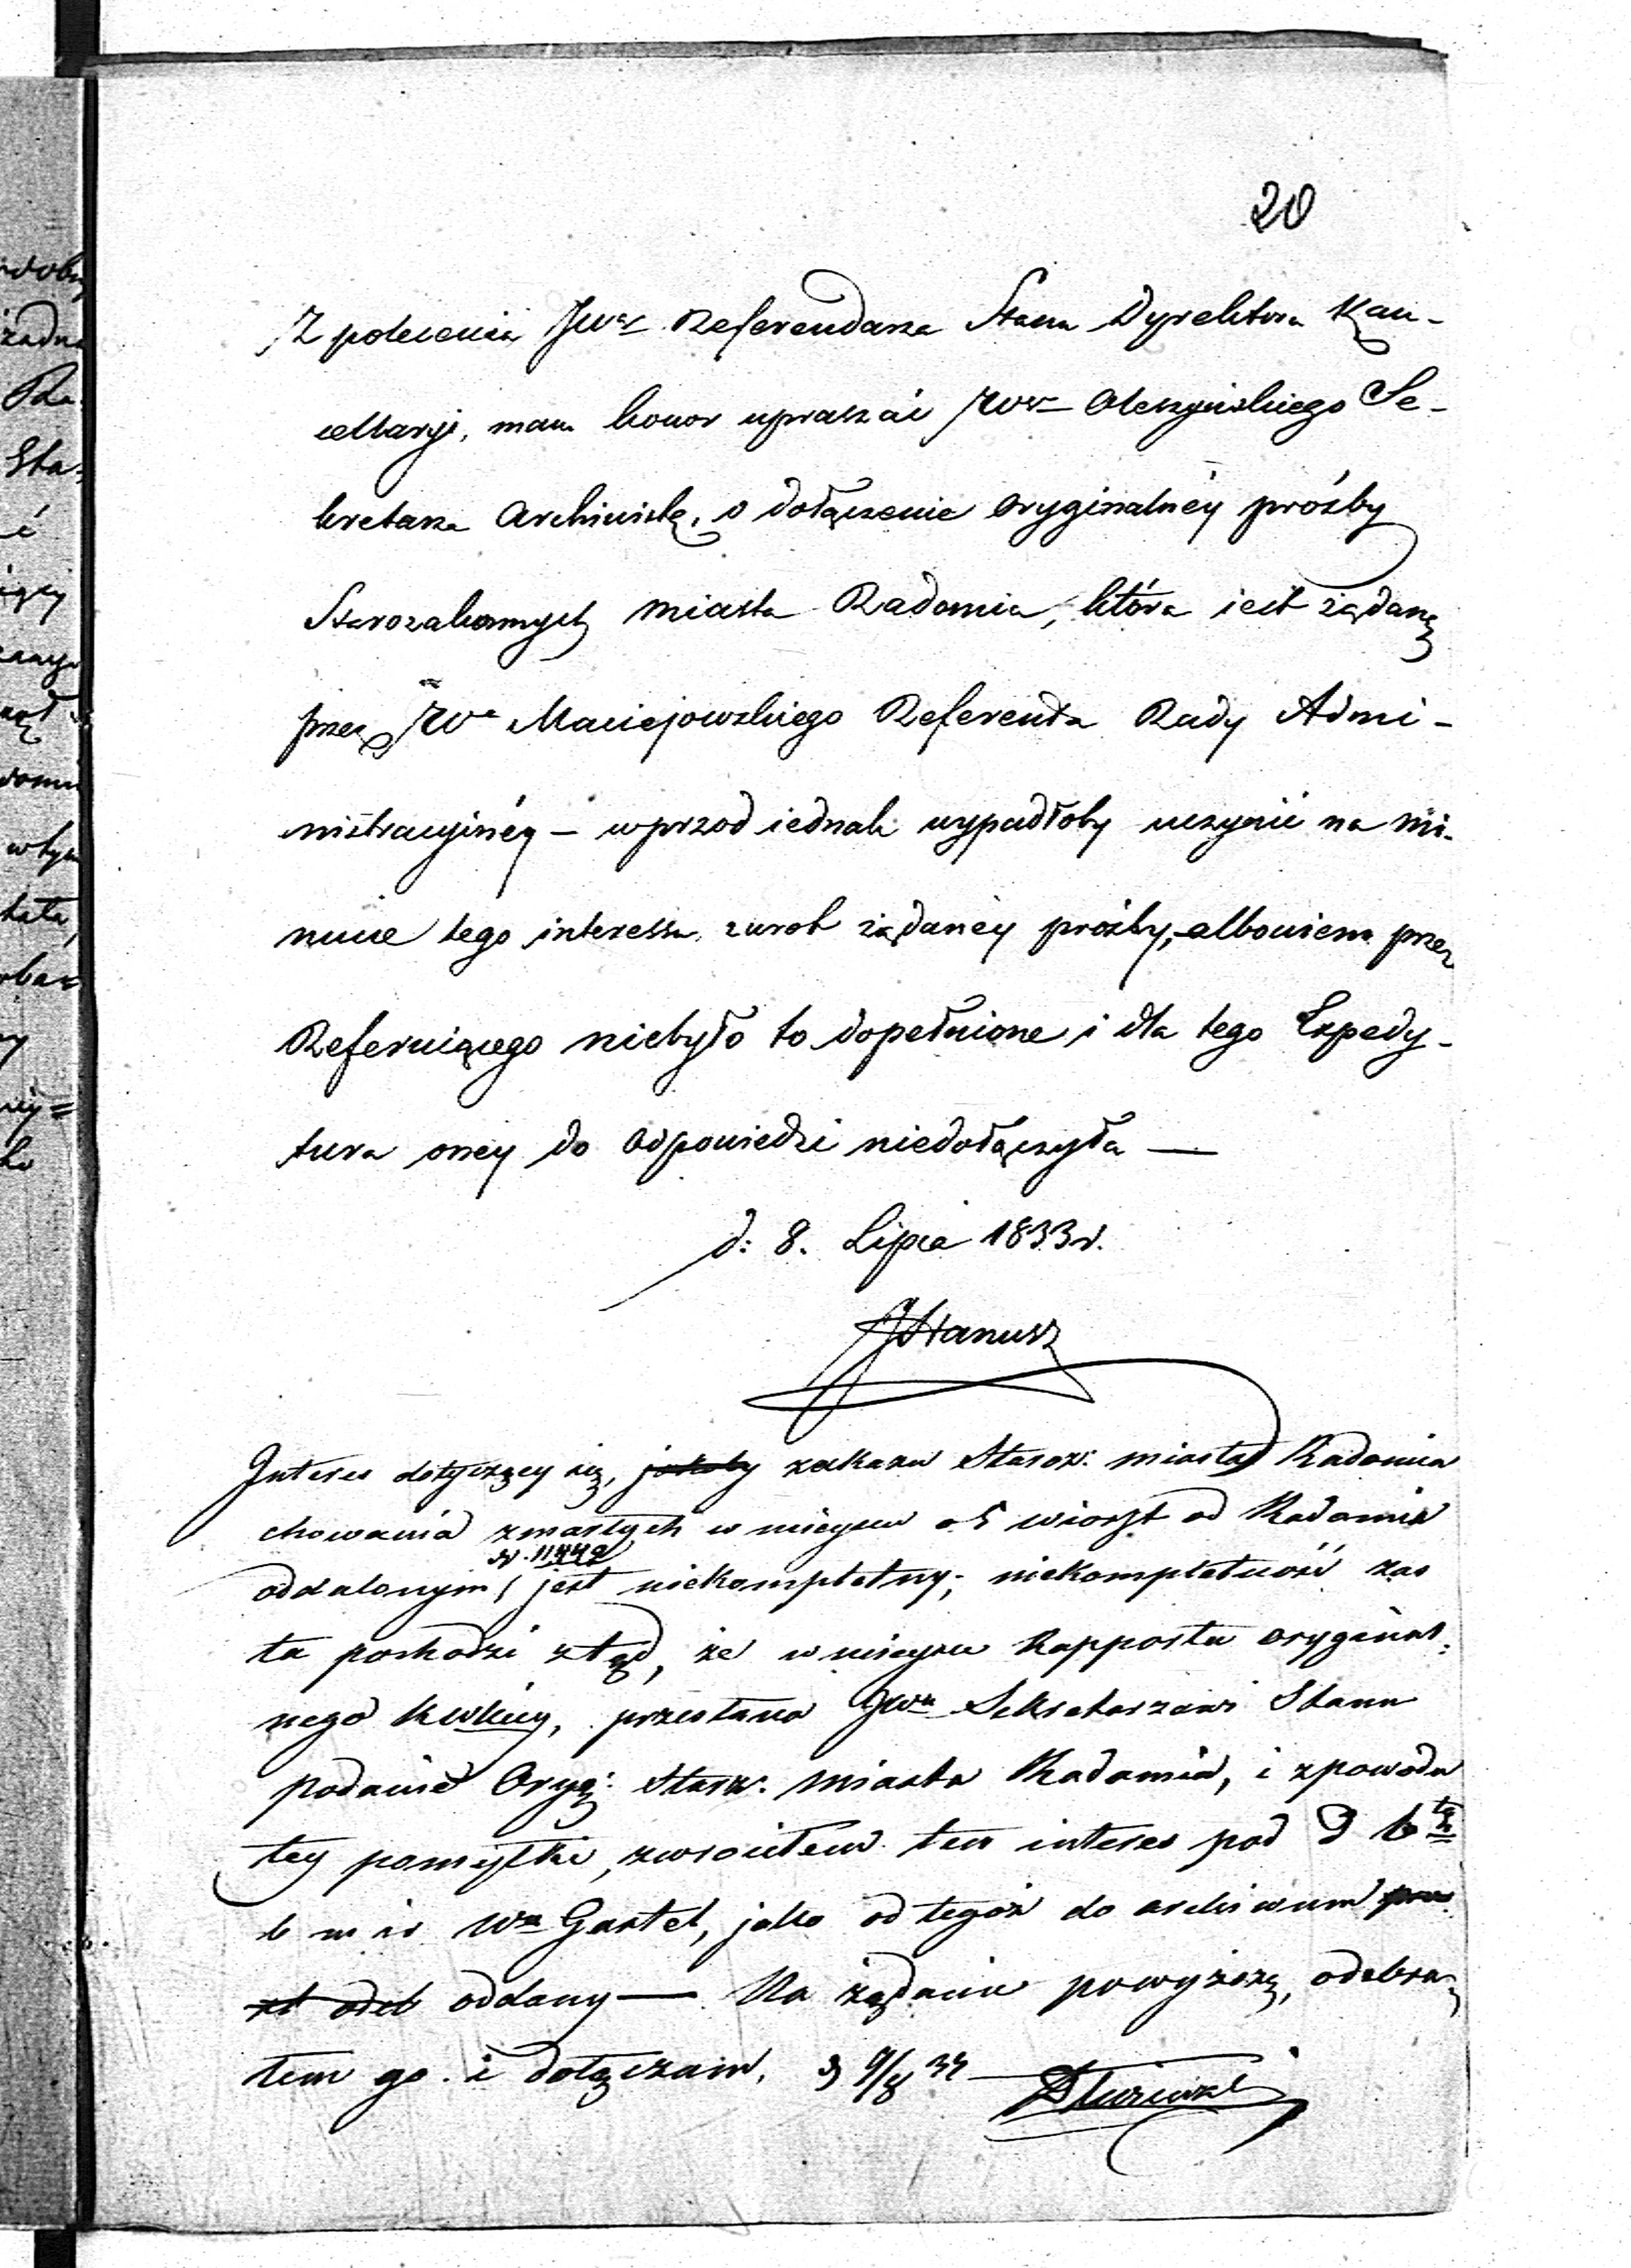 20
Z polecenia JWo Referendarza Stanu Dyrektora Kan-
cellaryi, mam honor upraszać Wo Oleszyńskiego Se-
kretarza Archiwistę, o dołączenie oryginalnéy prośby
Starozakonnych miasta Radomia, która iest żądaną
przez Wo Maciejowskiego Referenta Rady Admi-
nistracyinéy – wprzod iednak wypadłoby uczynić na mi-
nucie tego interessu, zwrot żądanéy prośby, albowiem przez
Referuiącego niebyło to dopełnione i dla tego Expedy-
tura onéy do odpowiedzi niedołączyła —
d: 8. Lipca 1833 r.
JHanusz
Interes dotyczący się, jakoby zakazu Staroz: miasta Radomia
chowania zmarłych w mieyscu o 5 wiorst od Radomia
N. 11449
oddalonym, jest niekompletny; niekompletność zaś
ta pochodzi ztąd, że w mieyscu Rapportu oryginal-
nego, przesłano JWu Sekretarzowi Stanu
podanie Oryg: Staroz. miasta Radomia, i z powodu
tey pomyłki, zwróciłem ten interes pod d
b m ir Wu Gastel, jako od tegoż do archiwum
oddany — Na żądanie powyższe, odebra-
łem go i dołączam. d 9/8 33